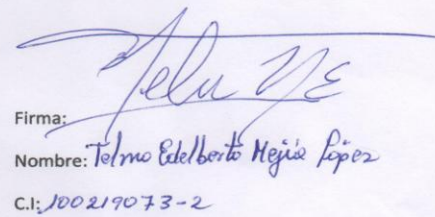 Firma:
Nombre: Telmo Edelberto Mejía López
C.I: 100219073-2